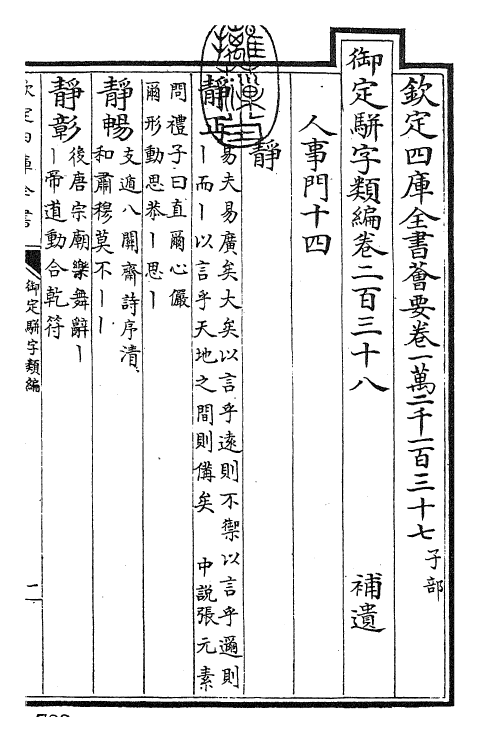 欽定四庫全書薈要卷一萬二千一百三十七 子部
御定駢字類編卷二百三十八 補遺
人事門十四
靜
靜正 易夫易廣矣大矣以言乎遠則不禦以言乎邇則
丨而丨以言乎天地之間則備矣 中說張元素
問禮子曰直爾心儼
爾形動思恭丨思丨
靜暢 支遁八關齋詩序清
和肅穆莫不丨丨
靜彰 後唐宗廟樂舞辭丨
丨帝道動合乾符
欽定四庫全書
御定駢字類編
一